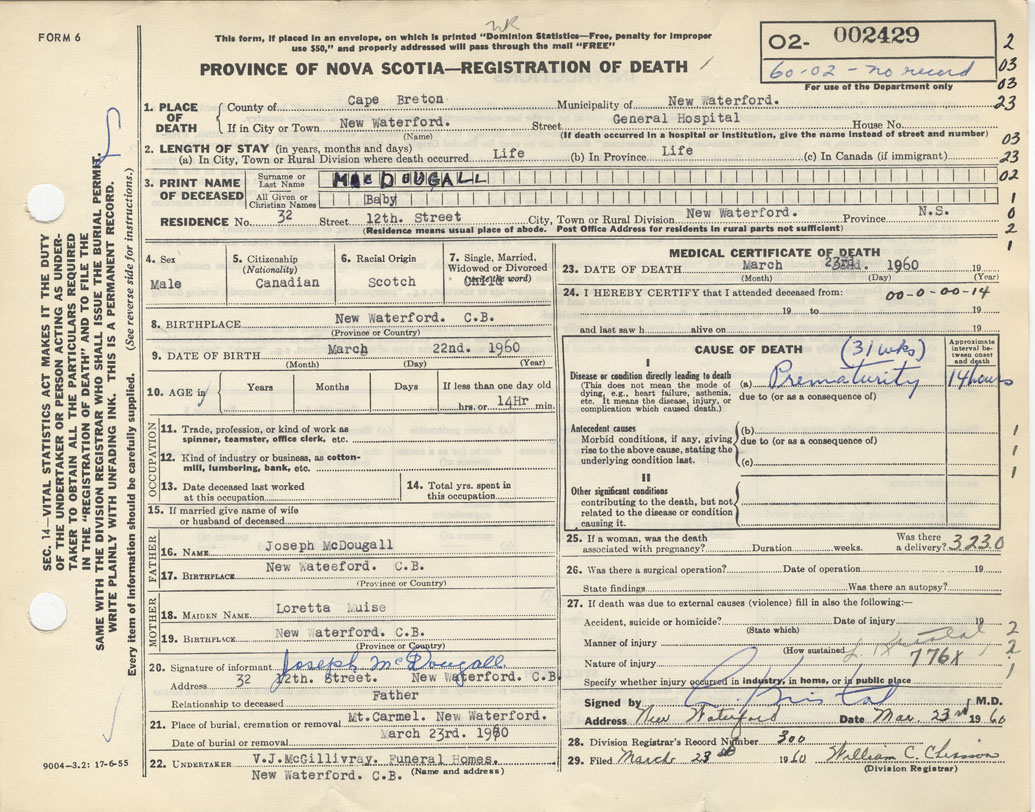 WR
FORM 6
This form, if placed in an envelope, on which is printed "Dominion Statistics—Free, penalty for improper
use $50," and properly addressed will pass through the mail "FREE"
PROVINCE OF NOVA SCOTIA—REGISTRATION OF DEATH
02- 002429
60-02 - no record
For use of the Department only
2
03
03
23
1. PLACE OF DEATH
County of Cape Breton Municipality of New Waterford.
If in City or Town New Waterford. Street General Hospital House No.
(Name) (If death occurred in a hospital or institution, give the name instead of street and number)
03
2. LENGTH OF STAY (in years, months and days)
(a) In City, Town or Rural Division where death occurred Life (b) In Province Life (c) In Canada (if immigrant) 23
3. PRINT NAME OF DECEASED
Surname or Last Name MacDOUGALL 02
All Given or Christian Names Baby 1
RESIDENCE No. 32 Street 12th. Street City, Town or Rural Division New Waterford. Province N.S. 0
(Residence means usual place of abode. Post Office Address for residents in rural parts not sufficient) 2
1
4. Sex
Male
5. Citizenship (Nationality)
Canadian
6. Racial Origin
Scotch
7. Single, Married, Widowed or Divorced (write the word)
Child
8. BIRTHPLACE New Waterford. C.B.
(Province or Country)
9. DATE OF BIRTH March 22nd. 1960
(Month) (Day) (Year)
10. AGE in
Years Months Days If less than one day old
hrs. or 14Hr min.
OCCUPATION
11. Trade, profession, or kind of work as
spinner, teamster, office clerk, etc.
12. Kind of industry or business, as cotton-
mill, lumbering, bank, etc.
13. Date deceased last worked
at this occupation
14. Total yrs. spent in
this occupation
15. If married give name of wife
or husband of deceased
FATHER
16. NAME Joseph McDougall
17. BIRTHPLACE New Wateeford. C.B.
(Province or Country)
MOTHER
18. MAIDEN NAME Loretta Muise
19. BIRTHPLACE New Waterford. C.B.
(Province or Country)
20. Signature of informant Joseph McDougall
Address 32 12th. Street. New Waterford. C.B
Relationship to deceased Father
21. Place of burial, cremation or removal Mt.Carmel. New Waterford.
Date of burial or removal March 23rd. 1960
22. UNDERTAKER V.J.McGillivray. Funeral Homes.
New Waterford. C.B. (Name and address)
MEDICAL CERTIFICATE OF DEATH
23. DATE OF DEATH March 23rd. 1960 19
(Month) (Day) (Year)
24. I HEREBY CERTIFY that I attended deceased from: 00-0-00-14
19 to 19
and last saw h alive on 19
CAUSE OF DEATH (31 wks)
Approximate interval between onset and death
I
Disease or condition directly leading to death
(This does not mean the mode of
dying, e.g., heart failure, asthenia,
etc. It means the disease, injury, or
complication which caused death.)
(a) Prematurity 14 hours
due to (or as a consequence of)
Antecedent causes
Morbid conditions, if any, giving
rise to the above cause, stating the
underlying condition last.
(b)
due to (or as a consequence of)
(c)
1
1
1
II
Other significant conditions
contributing to the death, but not
related to the disease or condition
causing it.
25. If a woman, was the death
associated with pregnancy? Duration weeks. Was there
a delivery? 3230
26. Was there a surgical operation? Date of operation 19
State findings Was there an autopsy?
27. If death was due to external causes (violence) fill in also the following:—
Accident, suicide or homicide? Date of injury 19 2
(State which)
Manner of injury 2
(How sustained)
Nature of injury 776X 1
Specify whether injury occurred in industry, in home, or in public place
Signed by M.D.
Address New Waterford Date Mar. 23rd 1960
28. Division Registrar's Record Number 300
29. Filed March 23rd 1960 William C. Chisson
(Division Registrar)
SEC. 14—VITAL STATISTICS ACT MAKES IT THE DUTY
OF THE UNDERTAKER OR PERSON ACTING AS UNDER-
TAKER TO OBTAIN ALL THE PARTICULARS REQUIRED
IN THE "REGISTRATION OF DEATH" AND TO FILE THE
SAME WITH THE DIVISION REGISTRAR WHO SHALL ISSUE THE BURIAL PERMIT.
WRITE PLAINLY WITH UNFADING INK. THIS IS A PERMANENT RECORD.
Every item of information should be carefully supplied. (See reverse side for instructions.)
9004-3.2: 17-6-55